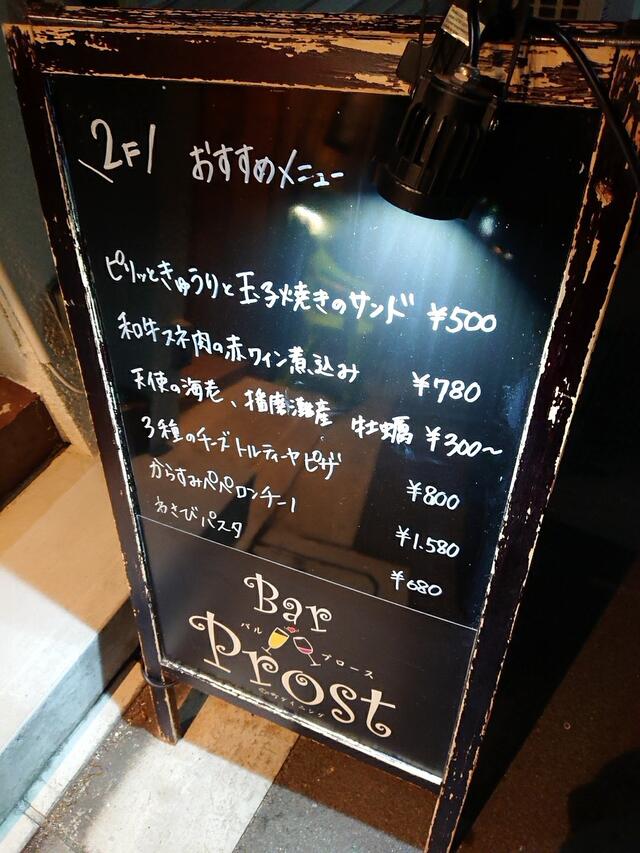 2F! おすすめメニュー
ピリッときゅうりと玉子焼きのサンド ¥500
和牛スネ肉の赤ワイン煮込み ¥780
天使の海老、播磨灘産 牡蠣 ¥300〜
3種のチーズトルティーヤピザ ¥800
からすみペペロンチーノ ¥1.580
わさびパスタ ¥680
Bar
バル プロースト
Prost